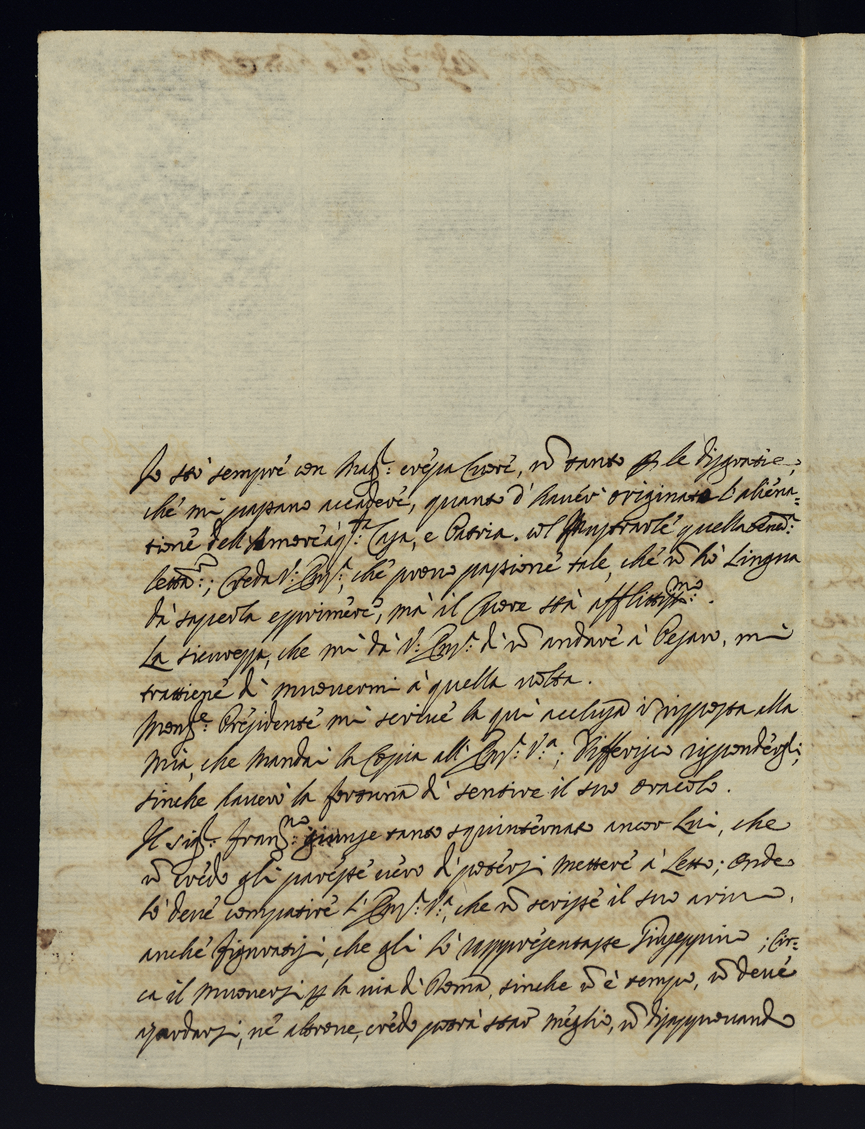 Io stò sempre con Mag.r crepa Cuore, ñ tanto p le disgratie,
che mi passano accadere, quanto d'hauer originato l'aliena-
tione dell'Amore à q.ta Casa, e Patria. col quella
lett.a; Creda V. Em.a, che prouo passione tale, che ñ hò Lingua
dà saperla esprimere, mà il Cuore stà afflittiss.mo.
La sicurezza, che mi dà V. Em.a di ñ andare à Pesaro, mi
trattiene di muouermi à quella uolta.
Mons.re Presidente mi scriue la qui acclusa in risposta alla
mia, che mandai la Copia all'Em.a V.a; Differisco rispondergli,
sinche hauerò la fortuna di sentire il suo oracolo.
Il Sig.r Fran.co giunse tanto squinternato ancor Lui, che
ñ credo gli paresse uero di potersi mettere à Letto; onde
lo deue compatire l'Em.a V.a, che ñ scrisse il suo arriuo,
anche figuratosi, che gli lo rappresentasse Giuseppino; Cir-
ca il muouersi p la uia di Roma, sinche ñ è tempo, ñ deue
azardarsi, ne altroue, credo potrà star meglio, ñ disapprouando